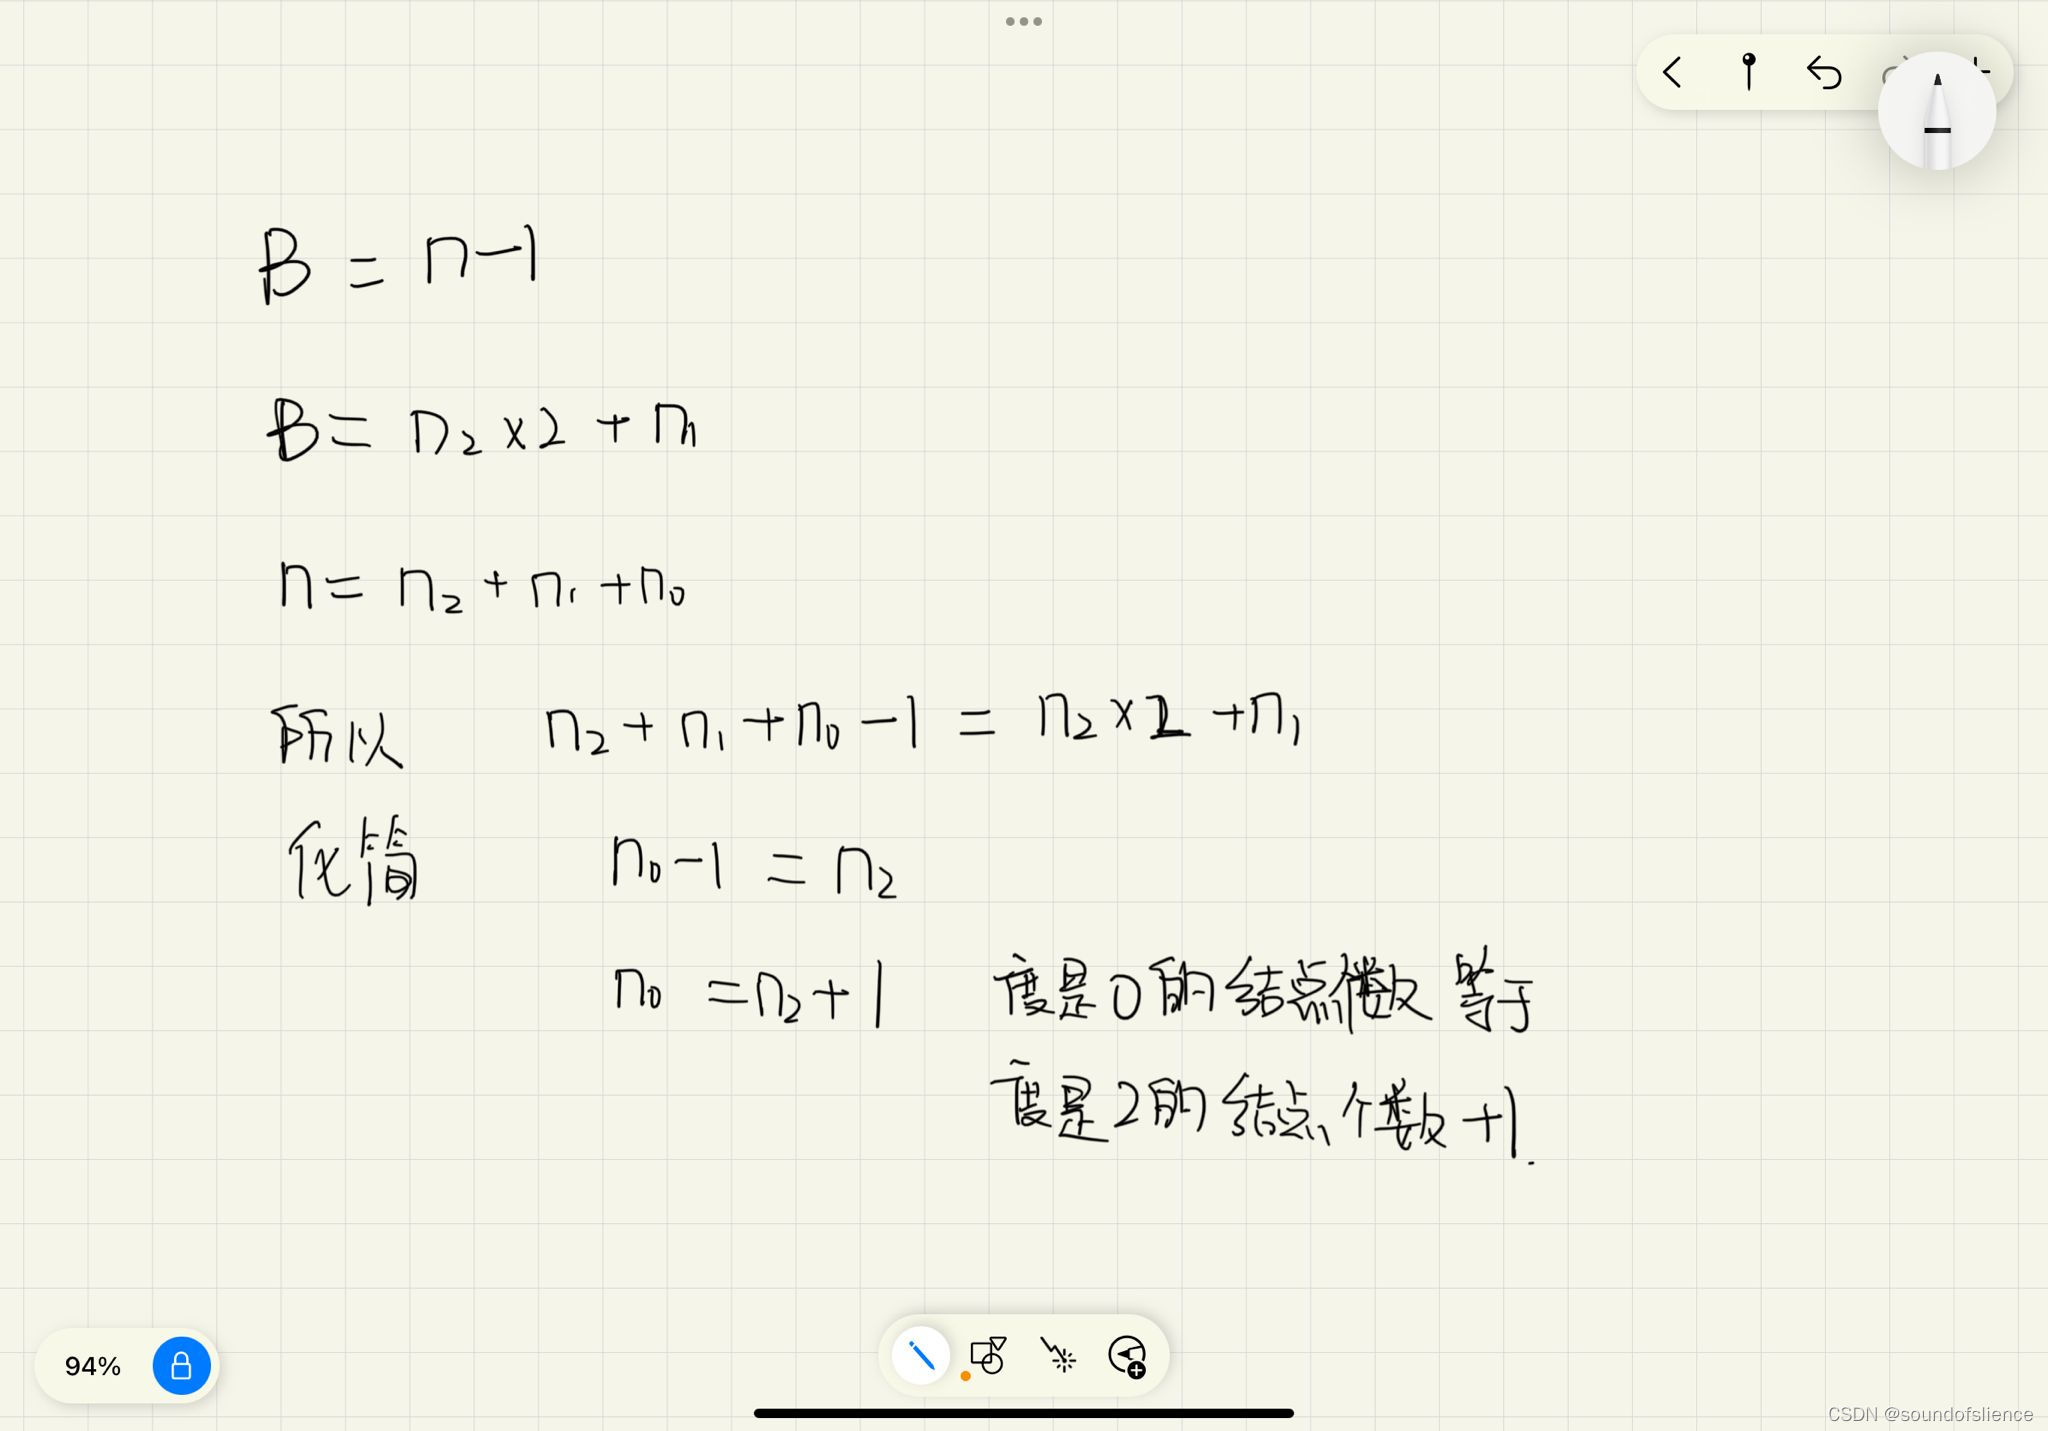 B = n-1
B = n₂×2 + n₁
n = n₂ + n₁ + n₀
所以 n₂ + n₁ + n₀ - 1 = n₂×2 + n₁
化简 n₀-1 = n₂
n₀ = n₂+1 度是0的结点个数 等于
度是2的结点个数+1.
94%
CSDN @soundofslience